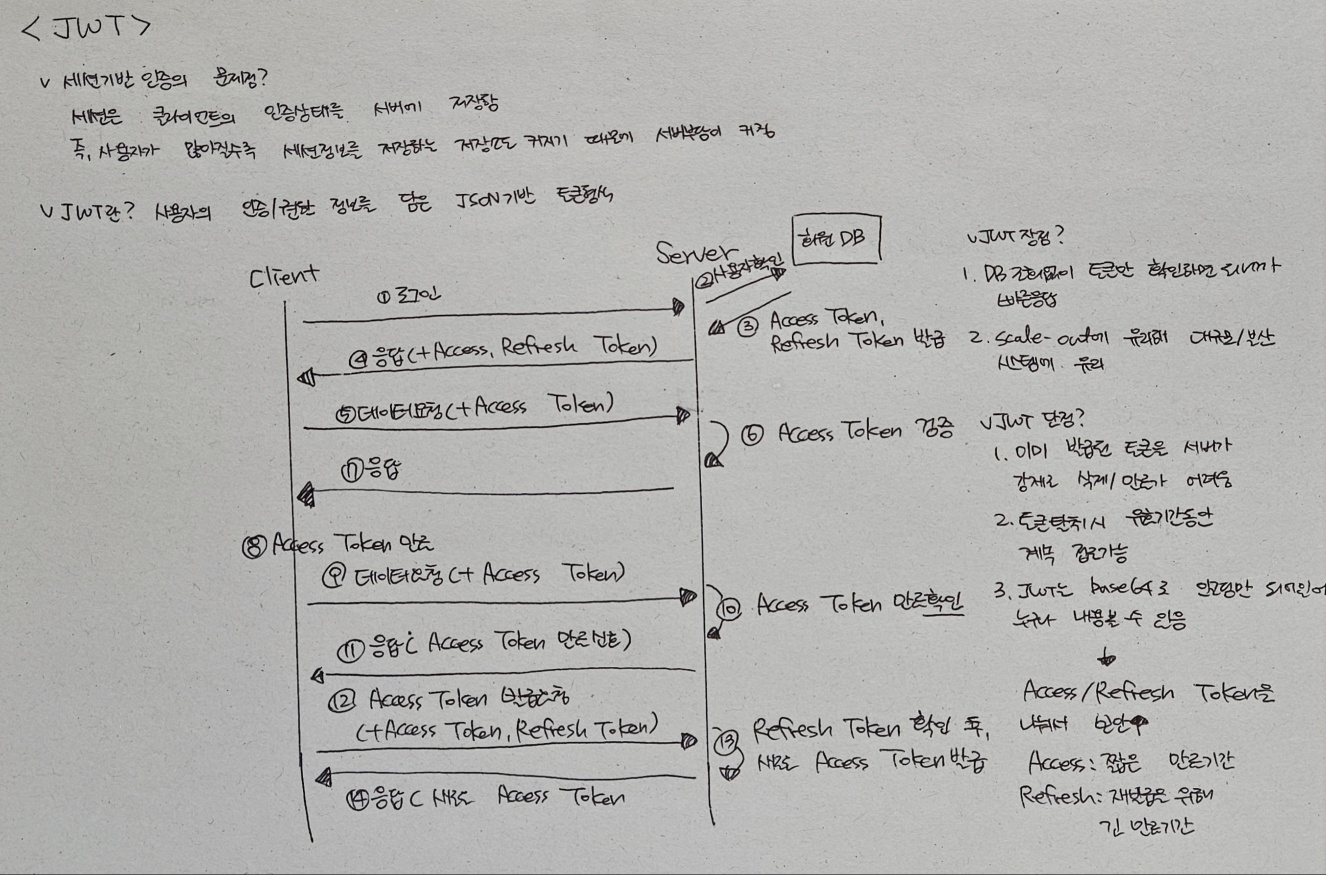 <JWT>
v 세션기반 인증의 문제점?
세션은 클라이언트의 인증상태를 서버에 저장함
즉, 사용자가 많아질수록 세션정보를 저장하는 저장소도 커지기 때문에 서버부담이 커짐
v JWT란? 사용자의 인증/권한 정보를 담은 JSON기반 토큰형식
Client
Server
회원 DB
① 로그인
②사용자확인
③ Access Token,
Refresh Token 발급
④응답(+Access, Refresh Token)
⑤데이터요청(+Access Token)
⑥ Access Token 검증
⑦응답
⑧Access Token 만료
⑨ 데이터요청(+ Access Token)
⑩ Access Token 만료확인
⑪응답( Access Token 만료신호)
⑫ Access Token 발급요청
(+Access Token, Refresh Token)
⑬ Refresh Token 확인 후,
새로운 Access Token 발급
⑭응답( 새로운 Access Token
v JWT 장점?
1. DB 조회없이 토큰만 확인하면 되니까
빠른응답
2. scale-out에 유리해 대규모/분산
시스템에 유리
v JWT 단점?
1. 이미 발급된 토큰은 서버가
강제로 삭제/만료가 어려움
2. 토큰탈취시 유효기간동안
계속 접근가능
3. JWT는 base64로 인코딩만 되어있어
누구나 내용볼 수 있음
↓
Access/Refresh Token을
나눠서 보안↑
Access: 짧은 만료기간
Refresh: 재발급을 위해
긴 만료기간